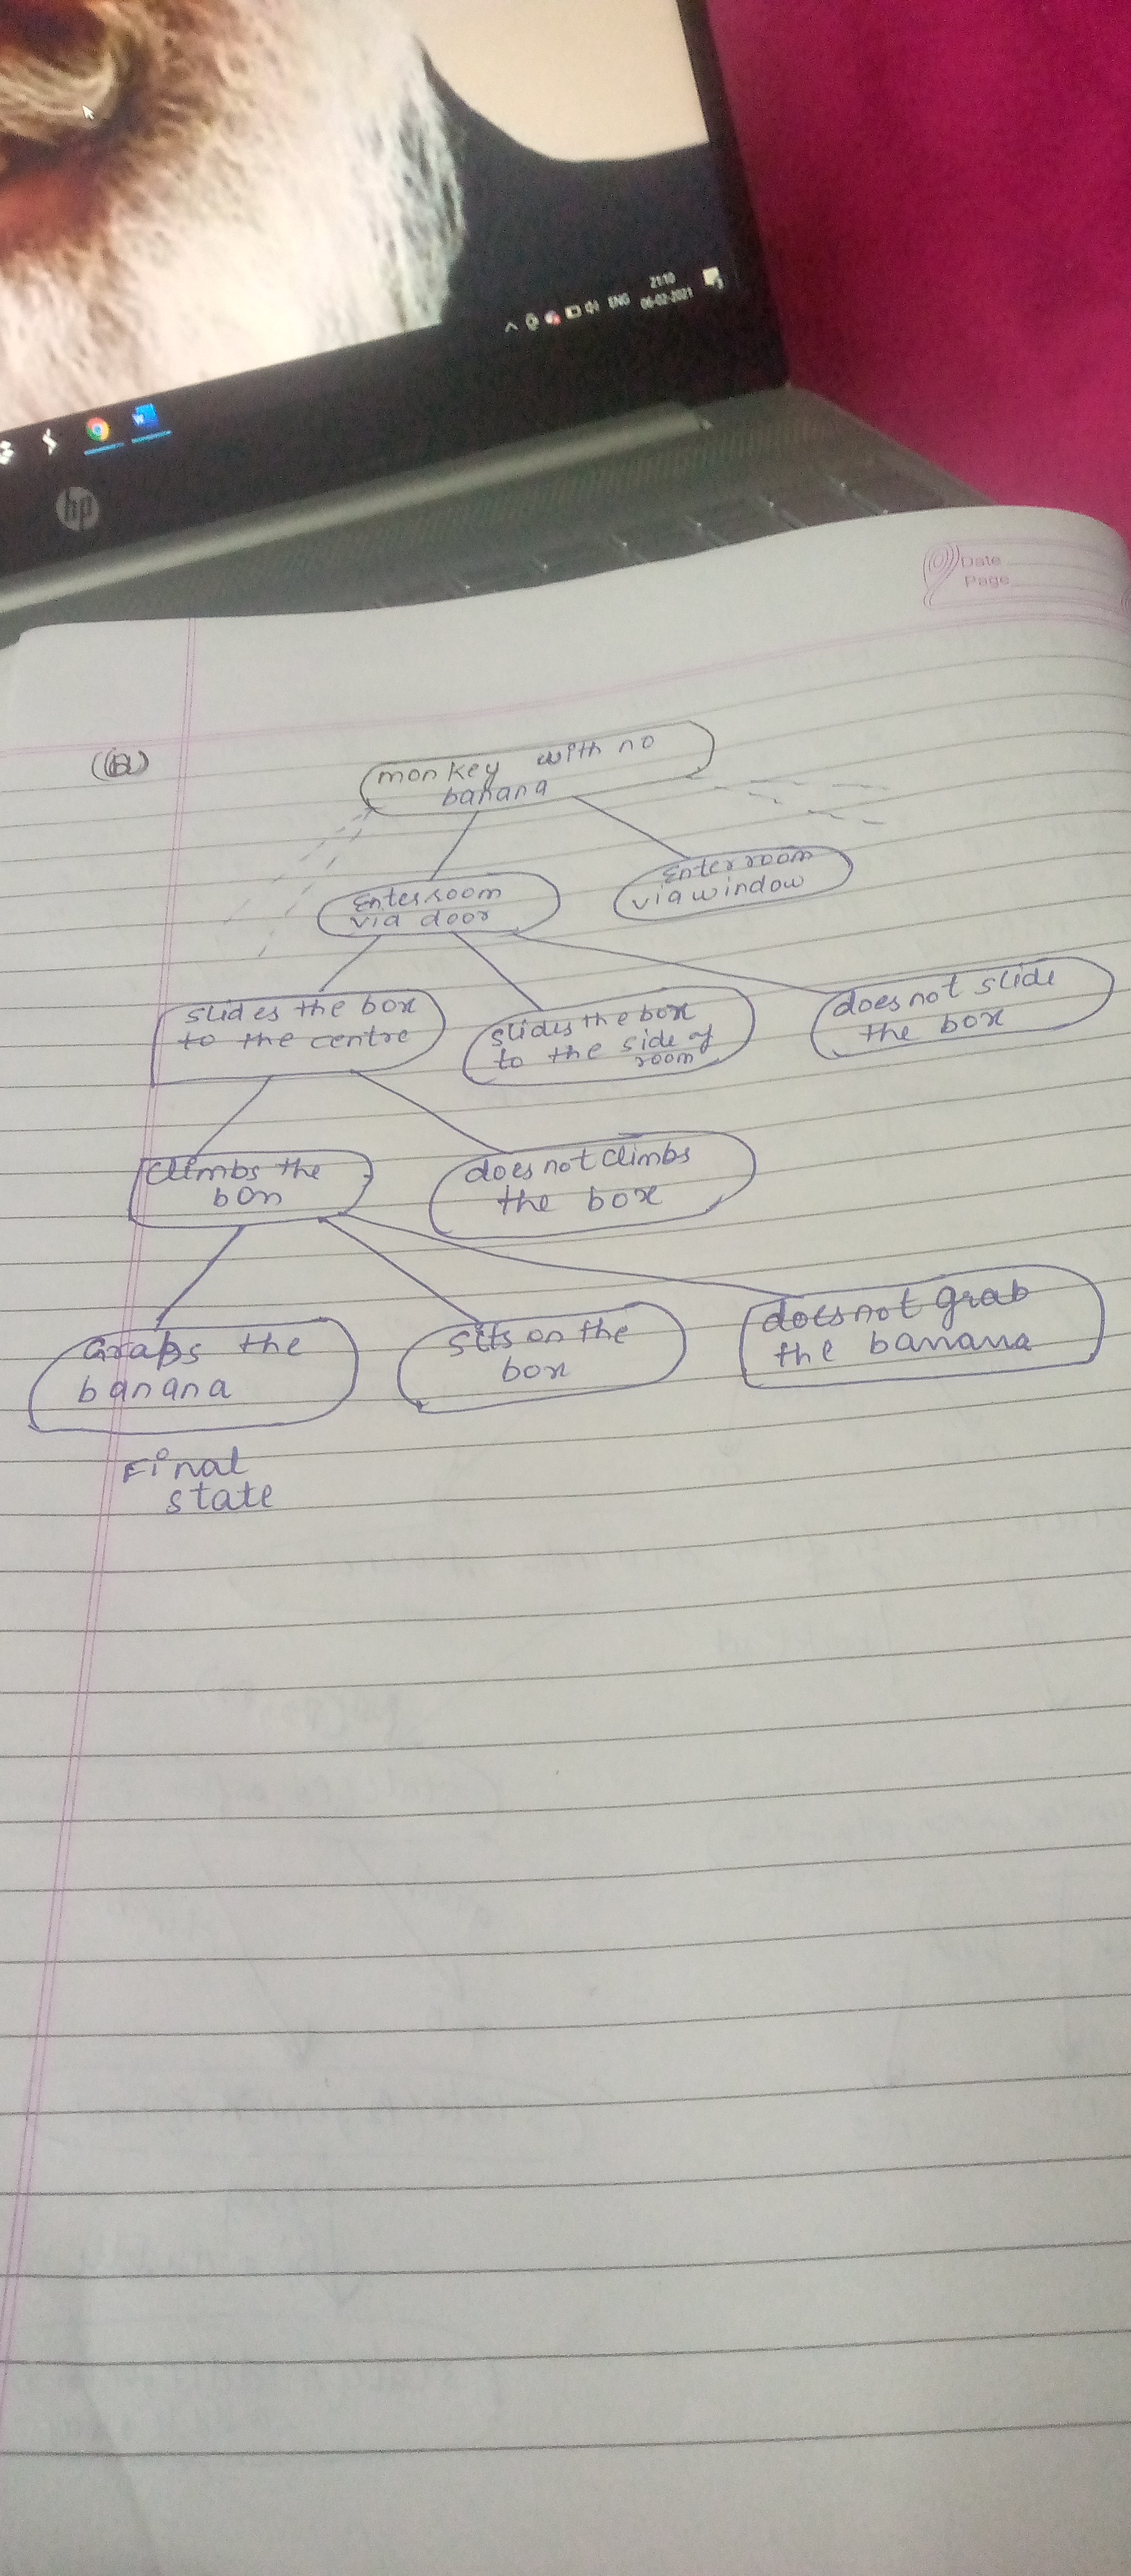 21:10
ENG
06-02-2021
hp
Date
Page
monkey with no
banana
Enter room
via door
Enter room
via window
slides the box
to the centre
slides the box
to the side of
room
does not slide
the box
climbs the
box
does not climbs
the box
Grabs the
banana
sits on the
box
does not grab
the banana
Final
state